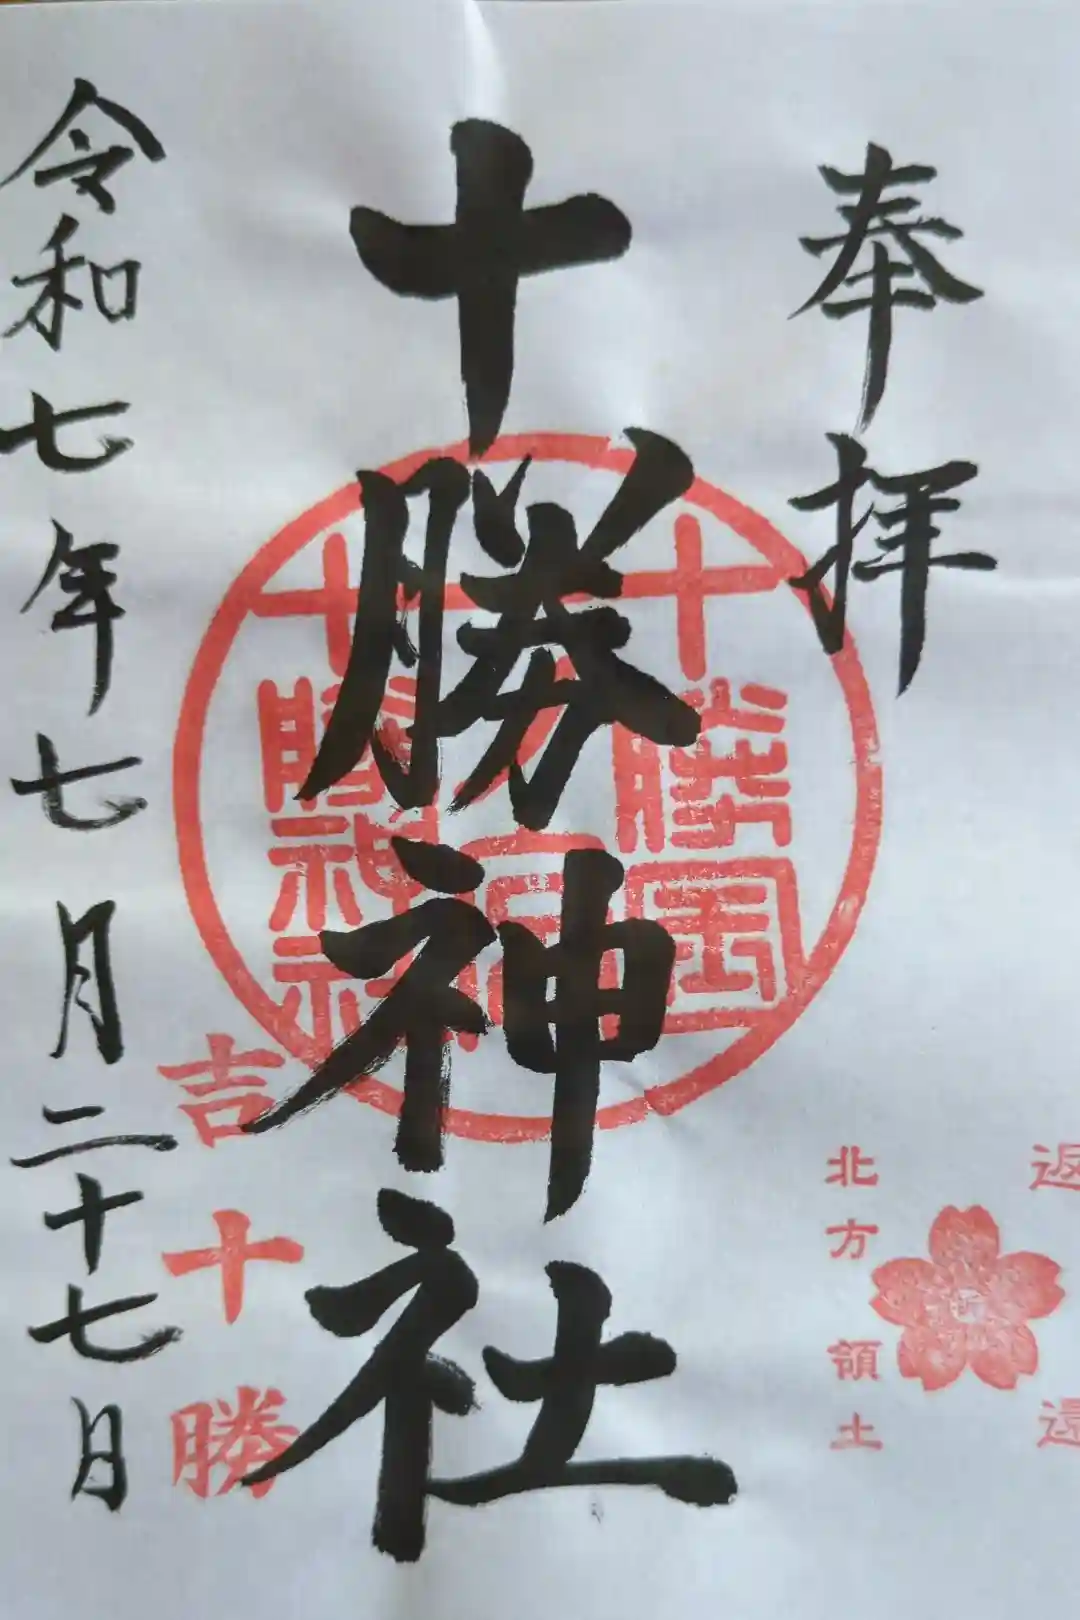 奉拝
返還
北方領土
十勝神社
十勝国
十勝神社
吉十勝
令和七年七月二十七日